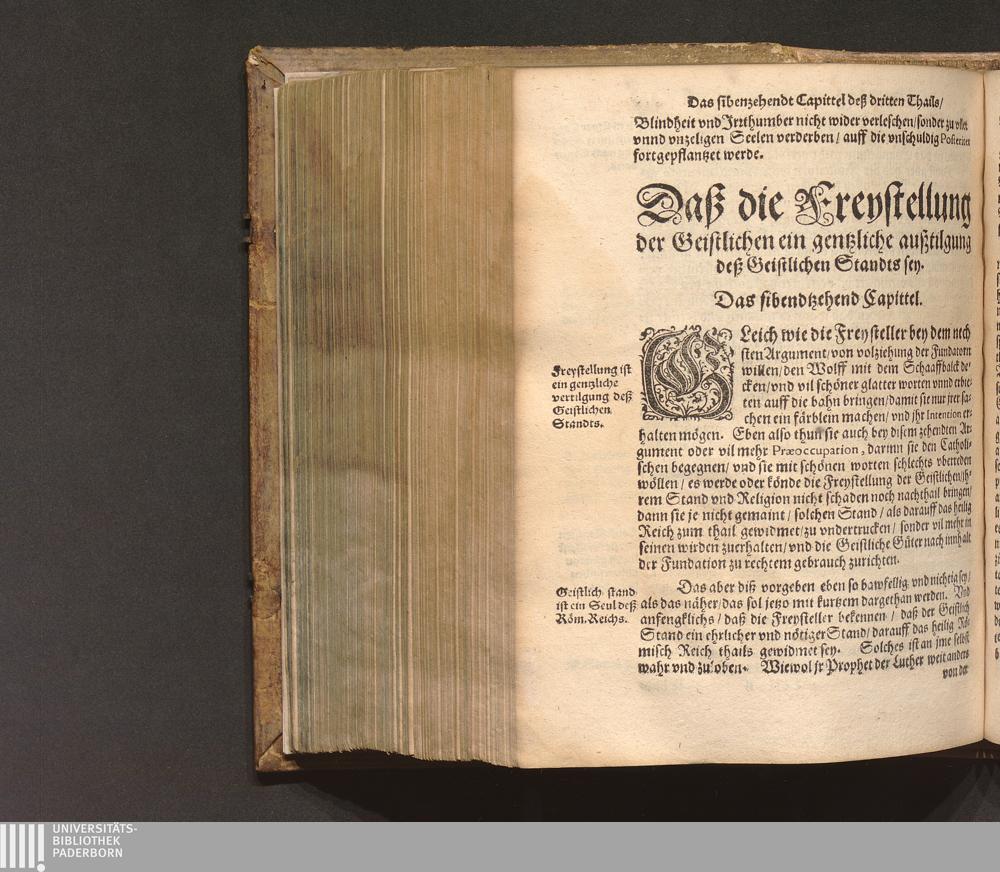 Das sibenzehendt Capittel deß dritten Thails/
Blindheit vnd Jrrthumber nicht wider verleschen/sonder zu viler
vnnd vnzeligen Seelen verderben/ auff die vnschuldig Posteritet
fortgepflantzet werde.
Daß die Freystellung
der Geistlichen ein gentzliche außtilgung
deß Geistlichen Standts sey.
Das sibendtzehend Capittel.
Freystellung ist
ein gentzliche
vertilgung deß
Geistlichen
Standts.
GLeich wie die Freysteller bey dem nech
sten Argument/von volziehung der Fundatorn
willen/den Wolff mit dem Schaaffbalck de-
cken/vnd vil schöner glatter worten vnnd erbie-
ten auff die bahn bringen/damit sie nur jrer sa-
chen ein färblein machen/vnd jhr Intention er-
halten mögen. Eben also thun sie auch bey disem zehendten Ar-
gument oder vil mehr Præoccupation, darinn sie den Catholi-
schen begegnen/ vnd sie mit schönen worten schlechts vbereden
wöllen/ es werde oder könde die Freystellung der Geistlichen/jh-
rem Stand vnd Religion nicht schaden noch nachthail bringen/
dann sie je nicht gemaint/ solchen Stand/ als darauff das heilig
Reich zum thail gewidmet/zu vndertrucken/ sonder vil mehr in
seinen wirden zuerhalten/vnd die Geistliche Güter nach innhalt
der Fundation zu rechtem gebrauch zurichten.
Geistlich stand
ist ein Seul deß
Röm. Reichs.
Das aber diß vorgeben eben so bawfellig vnd nichtig sey/
als das näher/das sol jetzo mit kurtzem dargethan werden. Vnd
anfengklichs/ daß die Freysteller bekennen/ daß der Geistlich
Stand ein ehrlicher vnd nötiger Stand/darauff das heilig Rö-
misch Reich thails gewidmet sey. Solches ist an jme selbst
wahr vnd zu loben. Wiewol jr Prophet der Luther weit anders
von der
UNIVERSITÄTS-
BIBLIOTHEK
PADERBORN